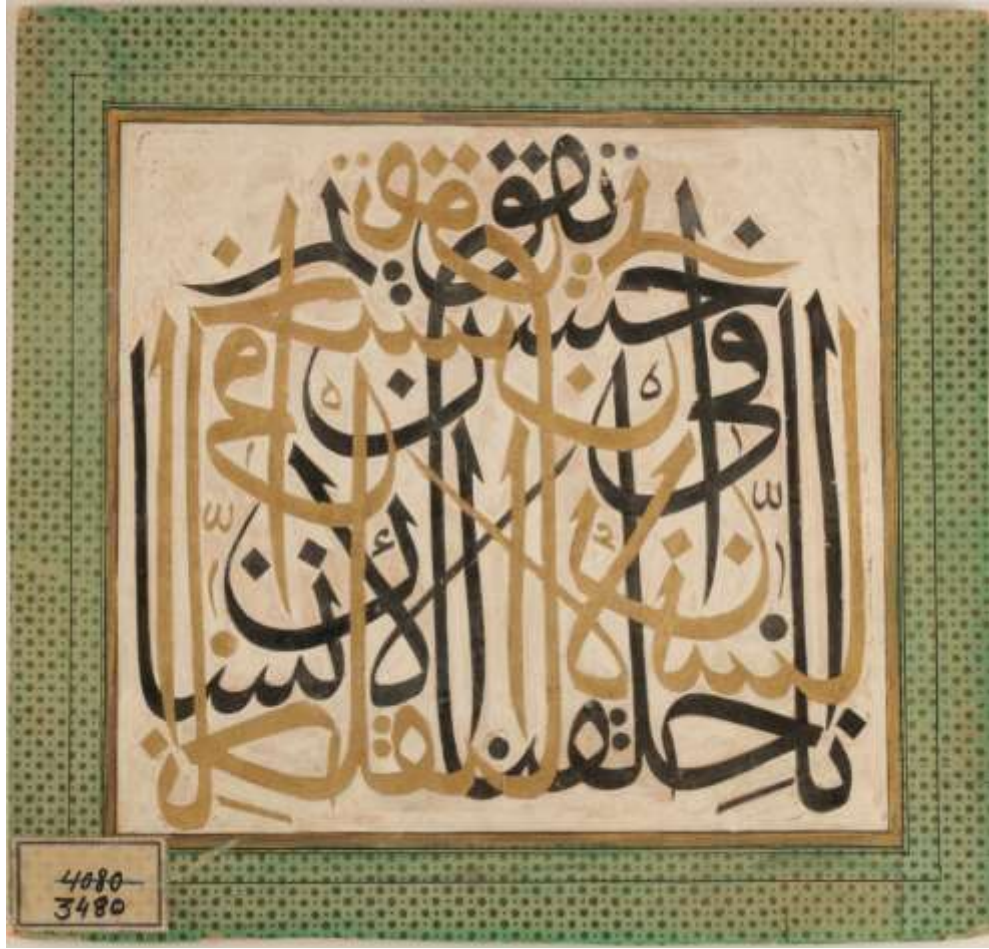 انا خلقنا الإنسان في احسن تقويم
4080
3480